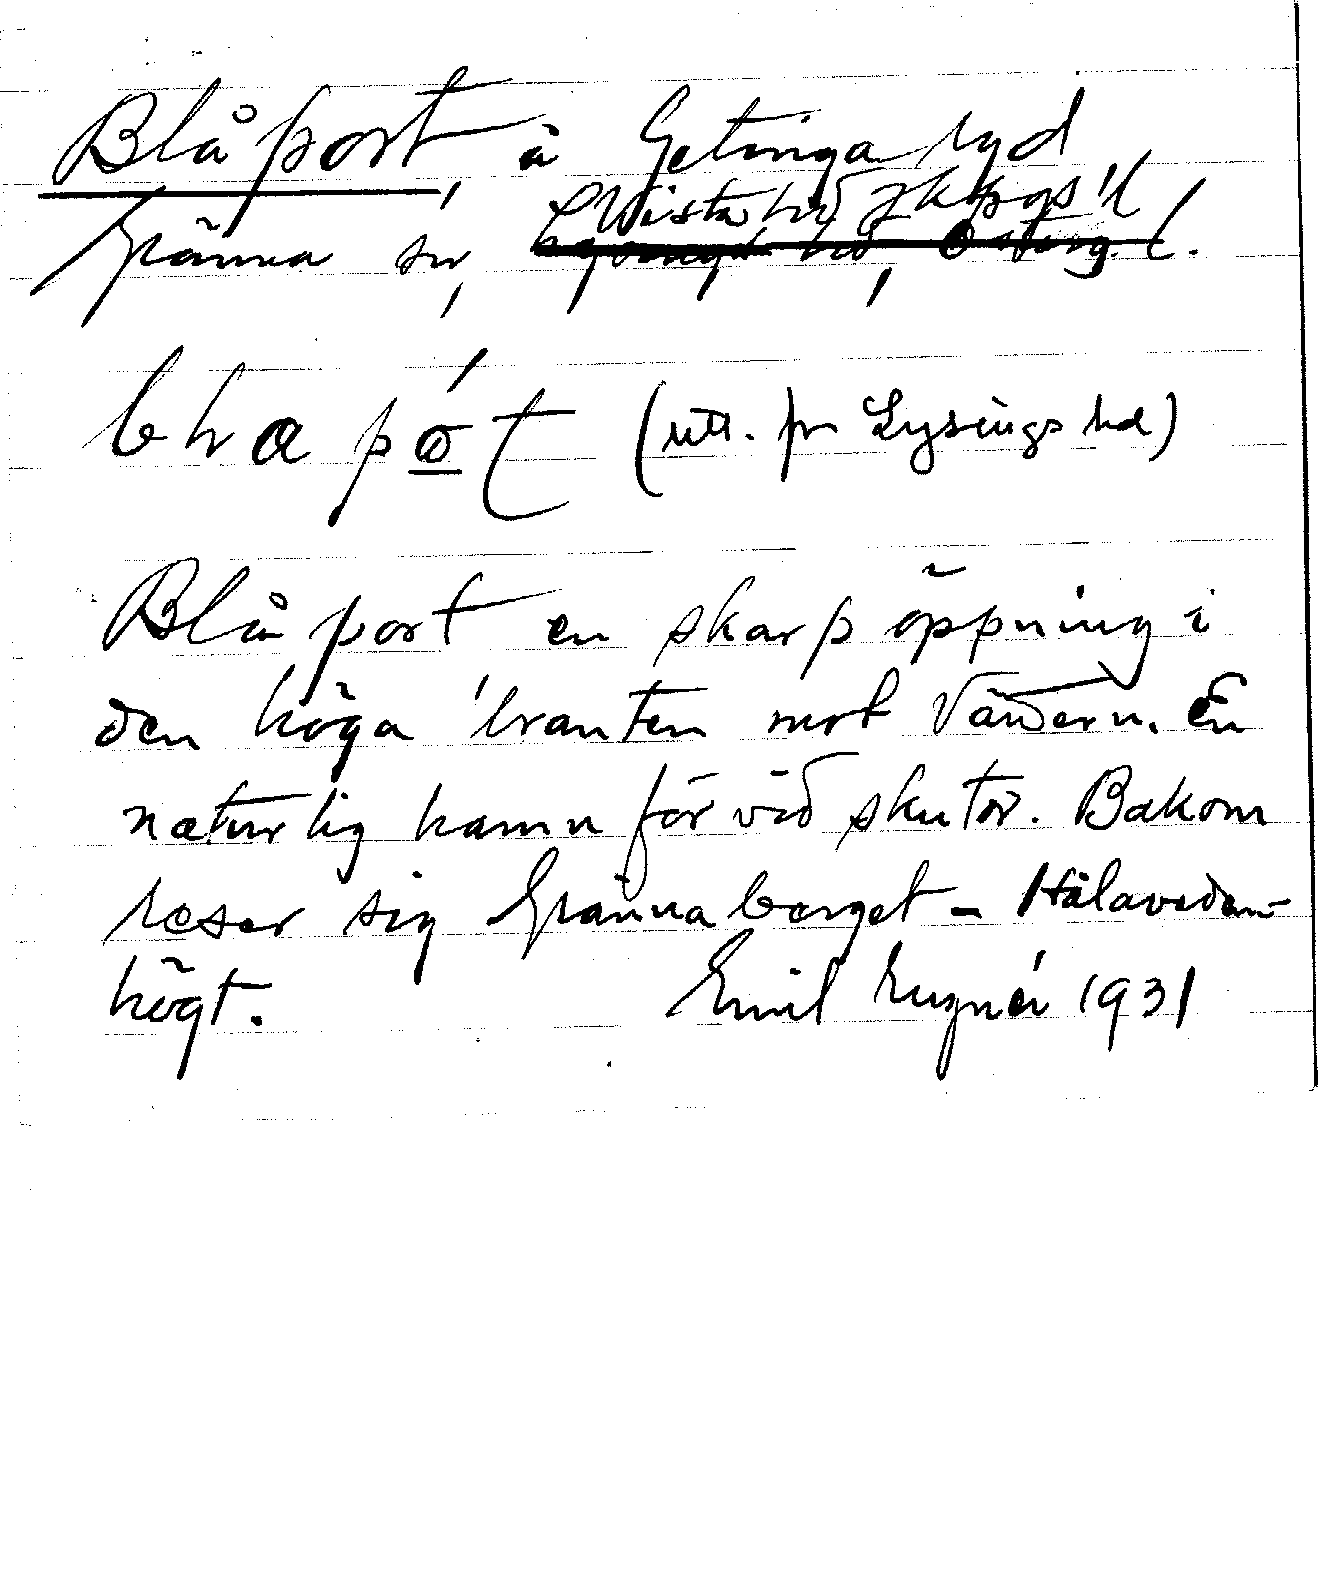 Blåport, å Getingaryd
Wista hd Jkpgs l
Gränna sn, hd, Österg. l.
(utt. fr Lysings hd)
Blåport en skarp öppning i
den höga branten mot Vättern. En
naturlig hamn för vedskutor. Bakom
reser sig Grännaberget - Hålaveden
högt. Emil 1931